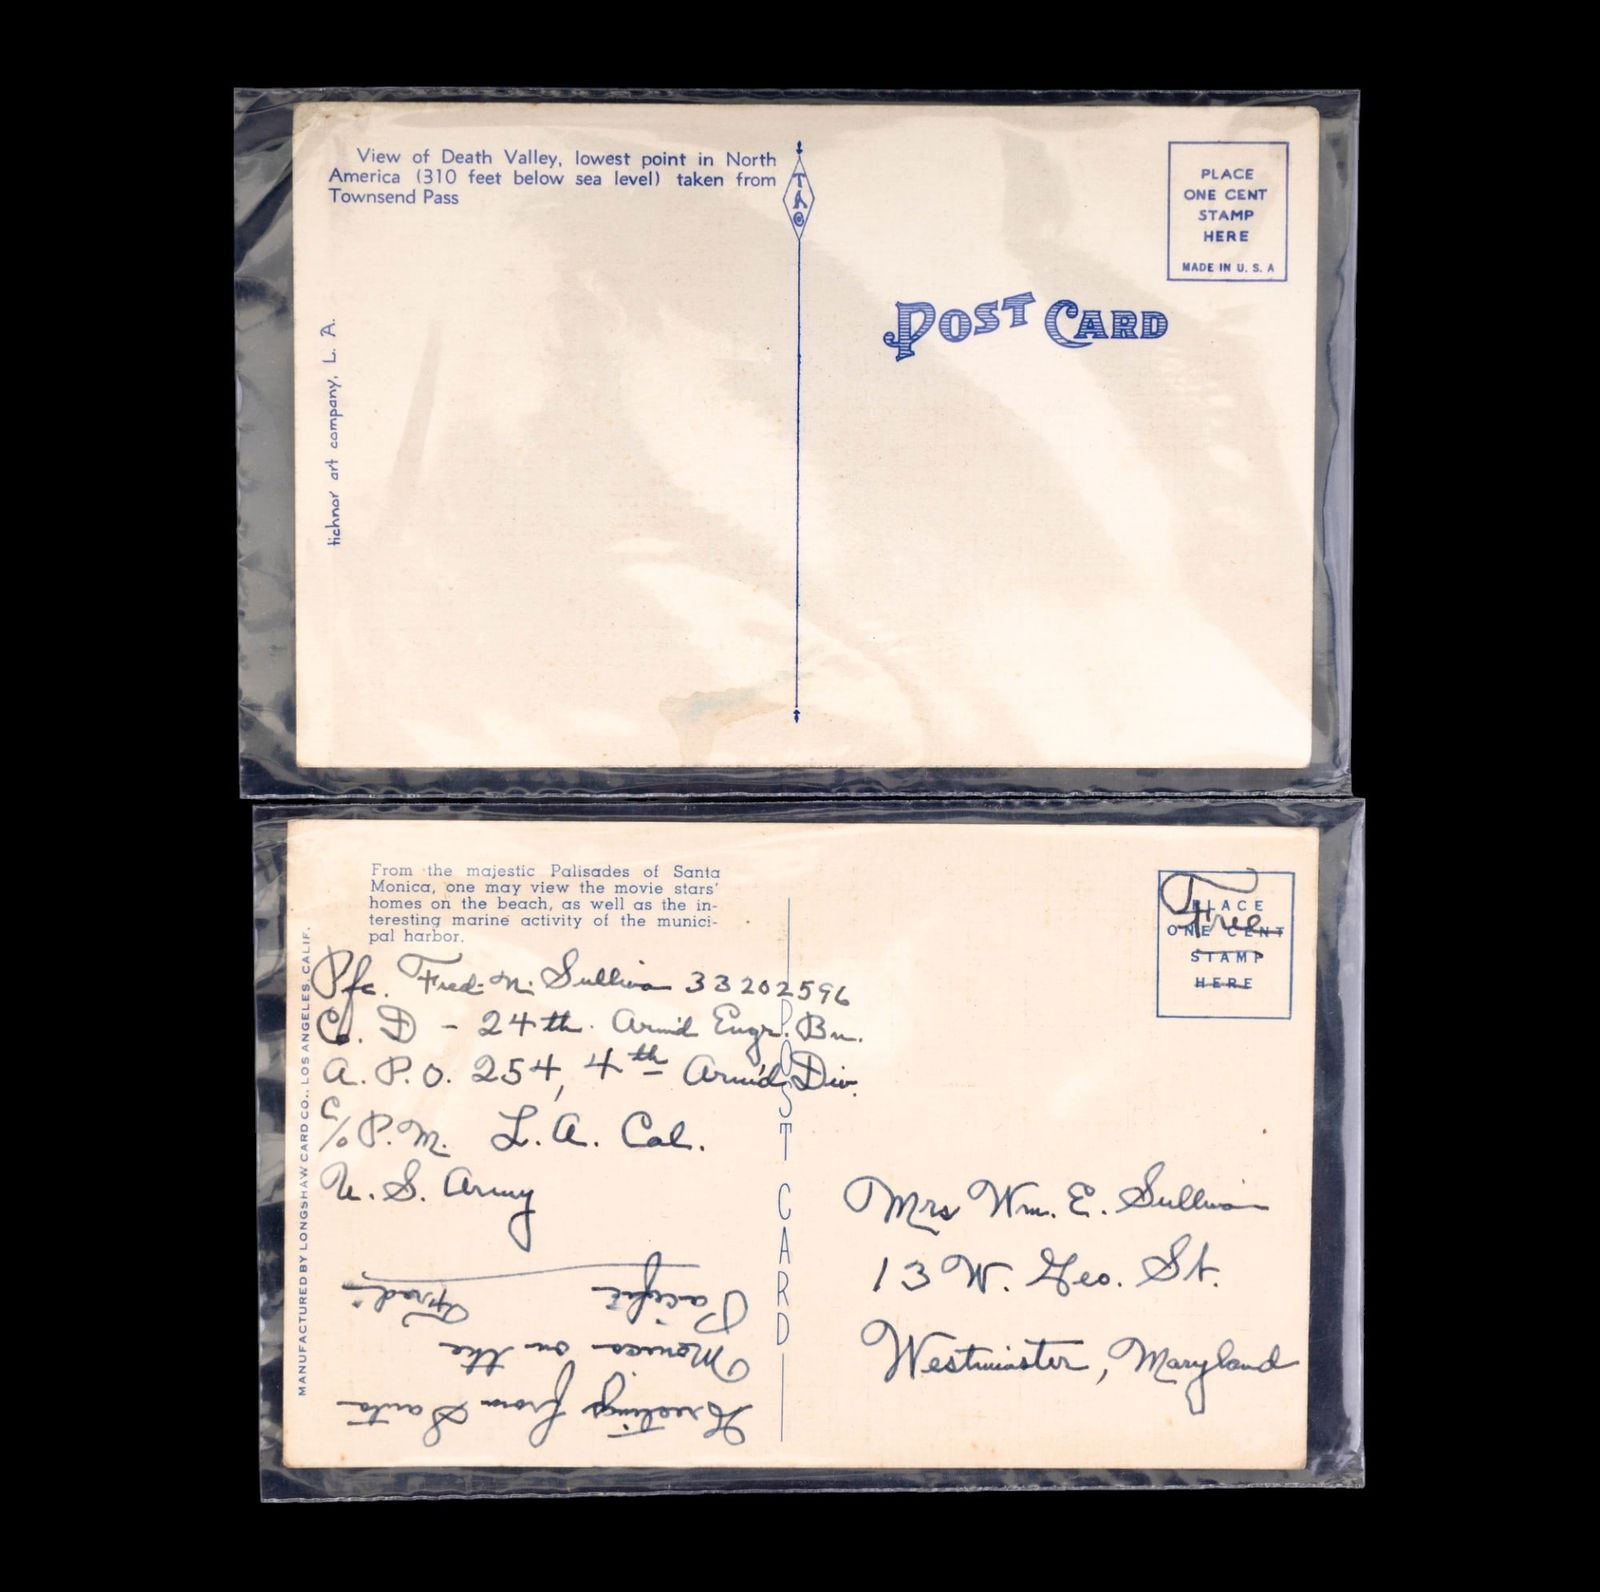 View of Death Valley, lowest point in North
America (310 feet below sea level) taken from
Townsend Pass
TAC
PLACE
ONE CENT
STAMP
HERE
MADE IN U. S. A
POST CARD
tichnor art company, L. A.
From the majestic Palisades of Santa
Monica, one may view the movie stars'
homes on the beach, as well as the in-
teresting marine activity of the munici-
pal harbor.
MANUFACTURED BY LONGSHAW CARD CO., LOS ANGELES, CALIF.
Pfc. Fred. N. Sullivan 33202596
Co. D - 24th. Arm'd Engr. Bn.
A. P. O. 254, 4th Arm'd Div.
c/o P. M. L. A. Cal.
U. S. Army
Greetings from Santa
Monica on the
Pacific
Fred.
POST CARD
Free
PLACE
ONE CENT
STAMP
HERE
Mrs Wm. E. Sullivan
13 W. Geo. St.
Westminster, Maryland